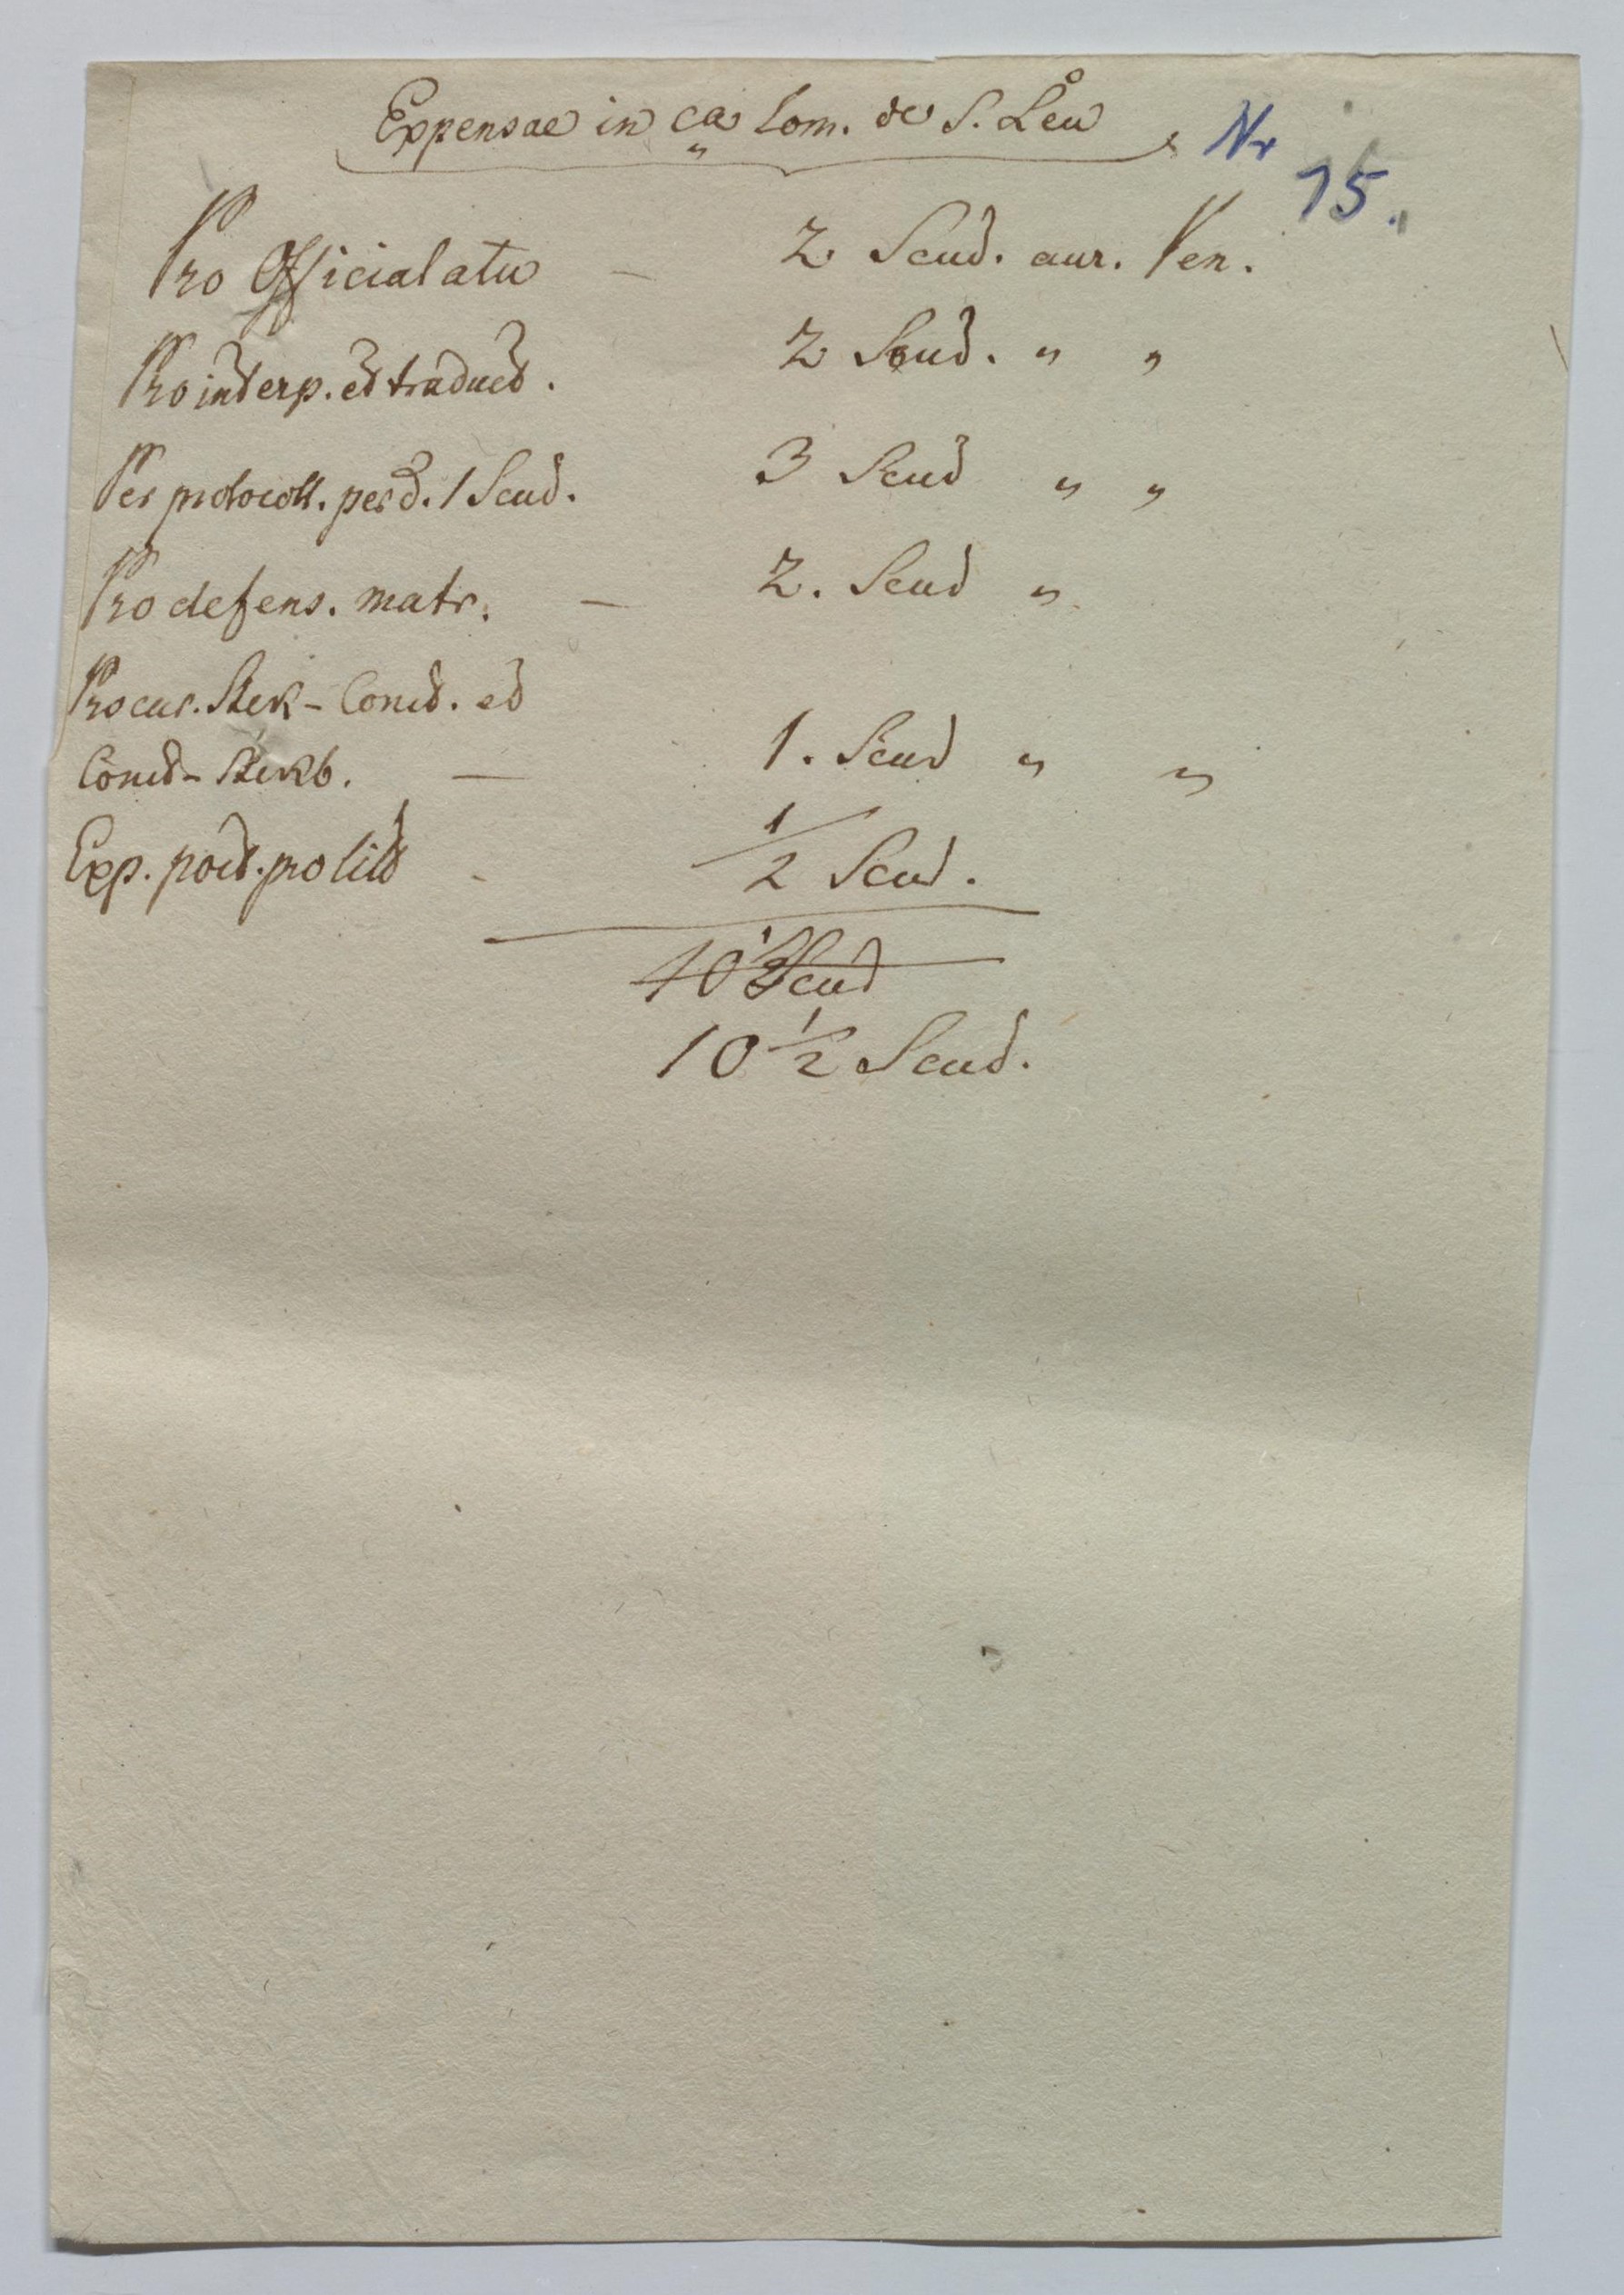 Expensae in ca Com. de S. Leu
Nr
15.
Pro Officialatu — 2 Scud. aur. Ven.
Pro interp. et traduct. 2 Scud. " "
Per protocoll. per d. 1 Scud. 3 Scud " "
Pro defens. matr. — 2. Scud "
Procur. Const. et
Const- — 1. Scud " "
Exp. post. - 1/2 Scud.
10 1/2 Scud
10 1/2 Scud.